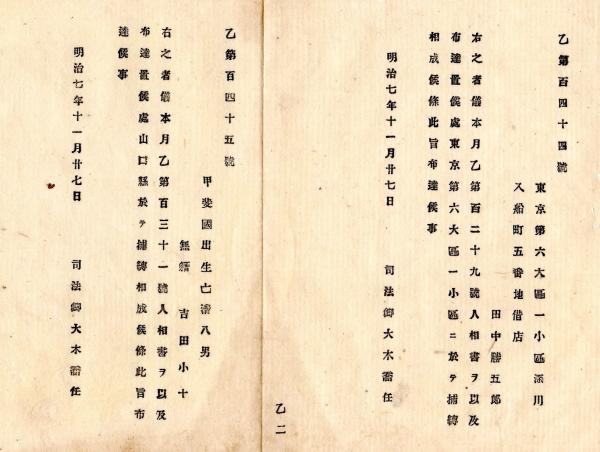 乙第百四十四號
東京第六大區一小區深川
入船町五番地借店
田中勝五郎
右之者儀本月乙第百二十九號人相書ヲ以及
布達置候處東京第六大區一小區ニ於テ捕縛
相成候條此旨布達候事
明治七年十一月廿七日 司法卿大木喬任
乙二
乙第百四十五號
甲斐國出生亡濟八男
無籍 吉田小十
右之者儀本月乙第百三十一號人相書ヲ以及
布達置候處山口縣於テ捕縛相成候條此旨布
達候事
明治七年十一月廿七日 司法卿大木喬任